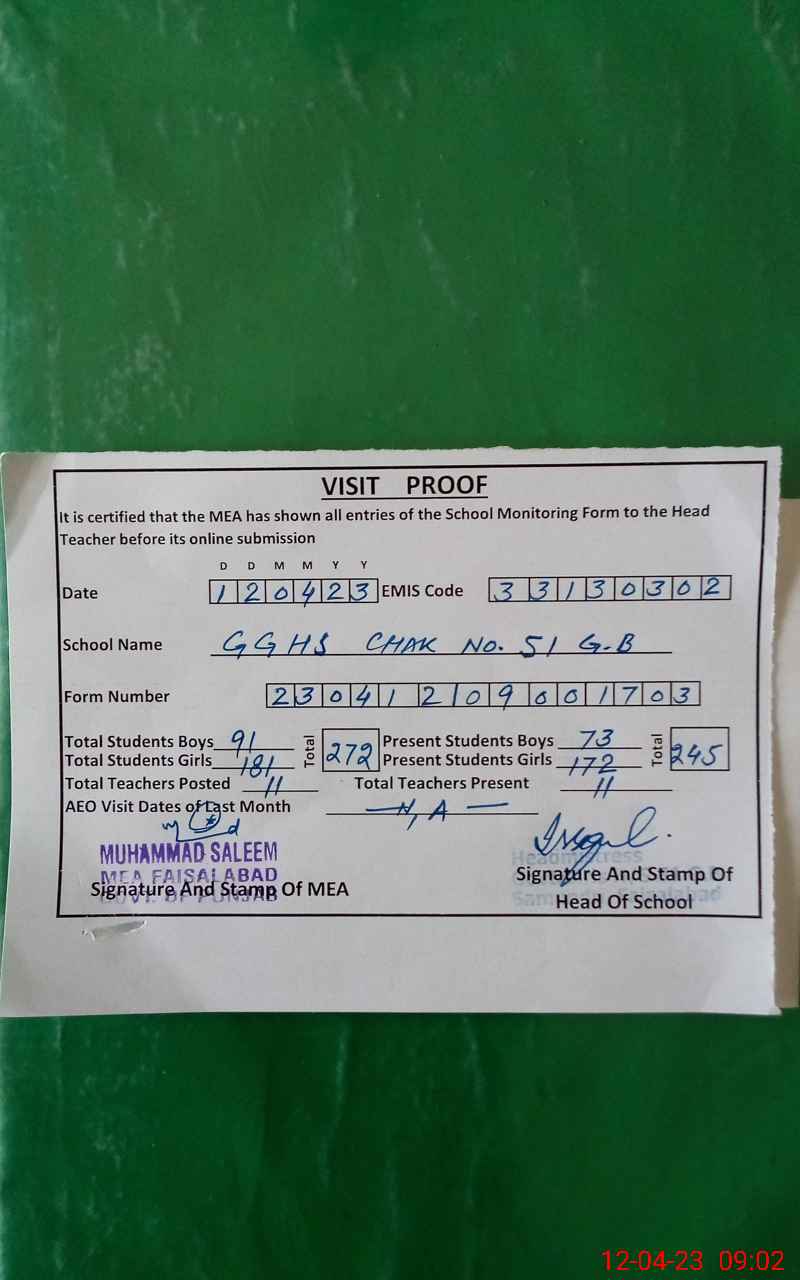 VISIT PROOF
It is certified that the MEA has shown all entries of the School Monitoring Form to the Head
Teacher before its online submission
D D M M Y Y
Date 120423 EMIS Code 33130302
School Name GGHS CHAK No. 51 G.B
Form Number 23041209001703
Total Students Boys 91 Total 272 Present Students Boys 73 Total 245
Total Students Girls 181 Present Students Girls 172
Total Teachers Posted 11 Total Teachers Present 11
AEO Visit Dates of Last Month N,A
MUHAMMAD SALEEM
MEA FAISALABAD
GOVT. OF PUNJAB
Signature And Stamp Of MEA
Headmistress
Signature And Stamp Of
Head Of School
Faisalabad
12-04-23 09:02